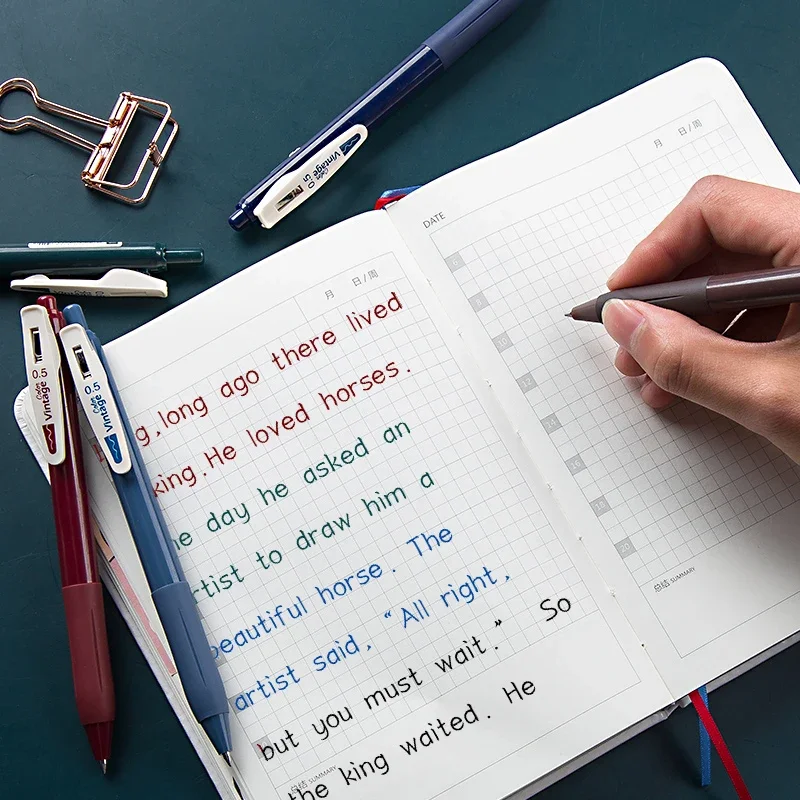 月 日/周
g,long ago there lived
king.He loved horses.
ne day he asked an
rtist to draw him a
beautiful horse. The
artist said, “All right,
but you must wait.” So
the king waited. He
总结 SUMMARY
DATE
月 日/周
6
8
10
12
14
16
18
20
总结 SUMMARY
Color
Vintage
0.5
0.5
Color
Vintage
0.5
Color
Vintage